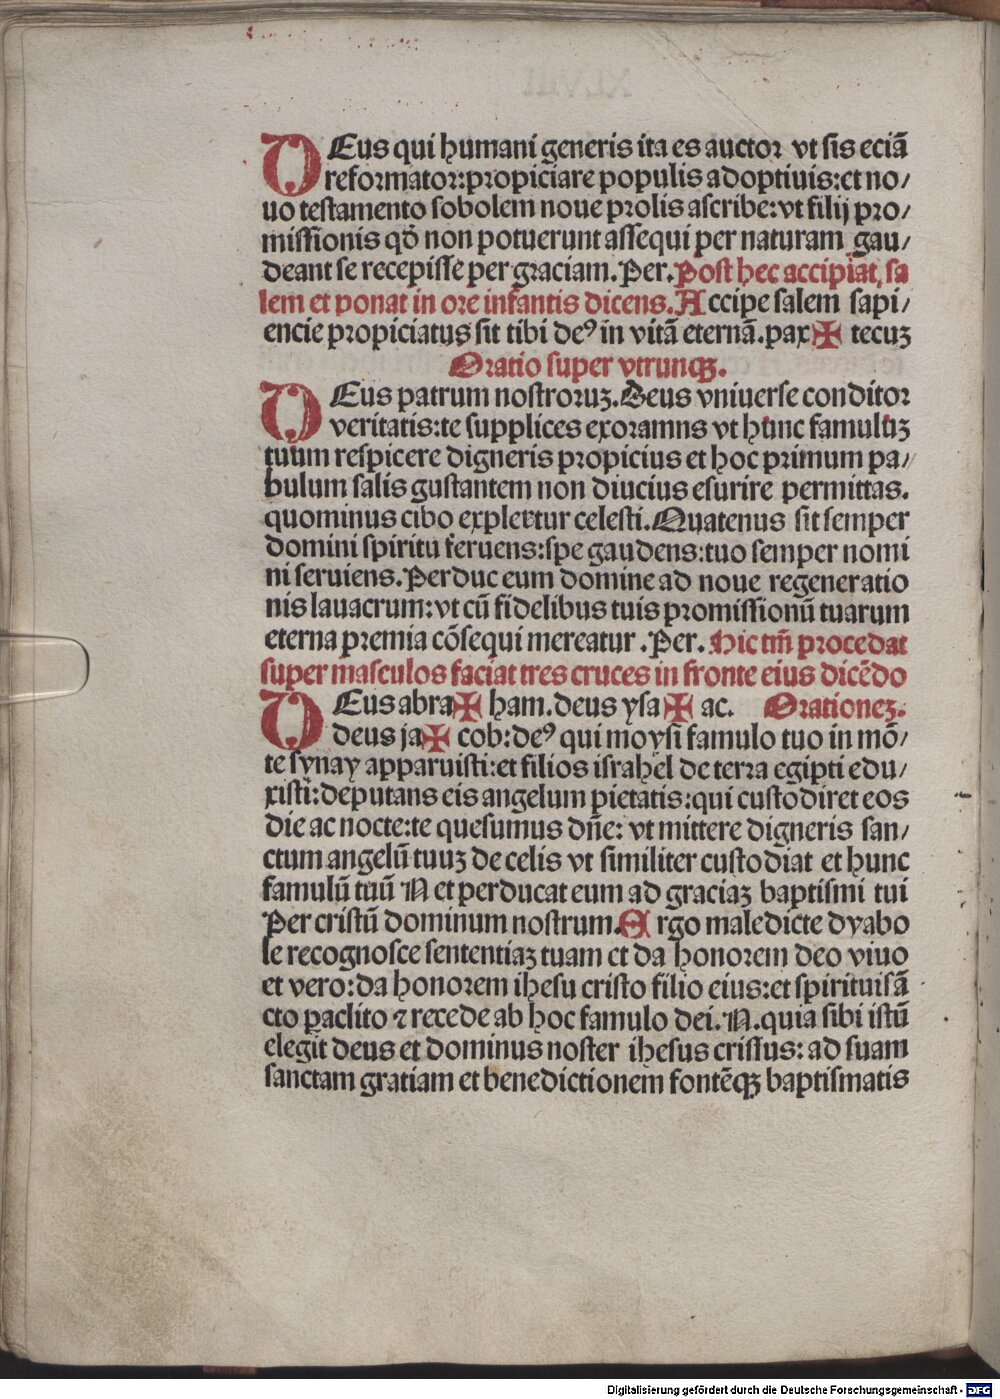 DEus qui humani generis ita es auctor vt sis eciā
reformator:propiciare populis adoptiuis:et no/
uo testamento sobolem noue prolis ascribe:vt filij pro/
missionis qđ non potuerunt assequi per naturam gau/
deant se recepisse per graciam. Per. Post hec accipiat sa
lem et ponat in ore infantis dicens. Accipe salem sapi/
encie propiciatus sit tibi deꝰ in vitā eternā.pax✠ tecuꝫ
Oratio super vtrunqꝫ.
DEus patrum nostroruꝫ. Deus vniuerse conditor
veritatis:te supplices exoramns vt hunc famuluꝫ
tuum respicere digneris propicius et hoc primum pa/
bulum salis gustantem non diucius esurire permittas.
quominus cibo expleatur celesti. Quatenus sit semper
domini spiritu feruens:spe gaudens:tuo semper nomi
ni seruiens. Perduc eum domine ad noue regeneratio
nis lauacrum:vt cū fidelibus tuis promissionū tuarum
eterna premia cōsequi mereatur . Per. Hic tm̄ procedat
super masculos faciat tres cruces in fronte eius dicēdo
DEus abra✠ ham. deus ysa✠ ac. Orationeꝫ.
deus ja✠ cob:deꝰ qui moysi famulo tuo in mō/
te synay apparuisti:et filios israhel de terra egipti edu/
xisti:deputans eis angelum pietatis:qui custodiret eos
die ac nocte:te quesumus dñe: vt mittere digneris san/
ctum angelū tuuꝫ de celis vt similiter custodiat et hunc
famulū tuū N et perducat eum ad graciaꝫ baptismi tui
Per cristū dominum nostrum. Ergo maledicte dyabo
le recognosce sententiaꝫ tuam et da honorem deo viuo
et vero:da honorem ihesu cristo filio eius:et spirituisā
cto paclito ⁊ recede ab hoc famulo dei. N. quia sibi istū
elegit deus et dominus noster ihesus crissus: ad suam
sanctam gratiam et benedictionem fontēqꝫ baptismatis
Digitalisierung gefördert durch die Deutsche Forschungsgemeinschaft - DFG